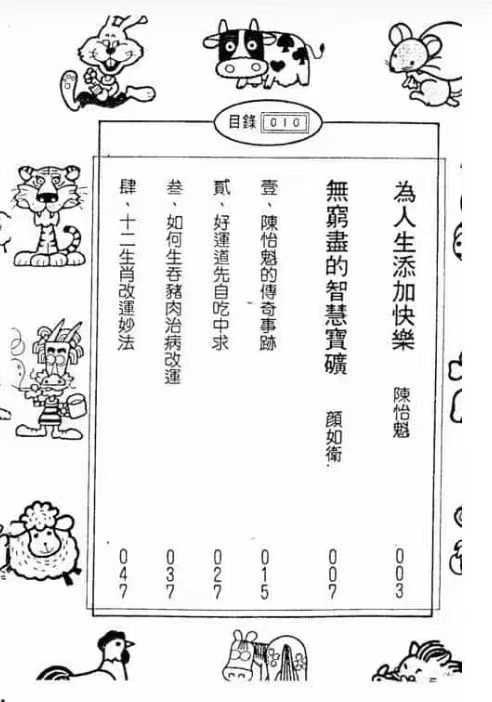 目錄 010
為人生添加快樂 陳怡魁 003
無窮盡的智慧寶礦 顏如衛 007
壹、陳怡魁的傳奇事跡 015
貳、好運道先自吃中求 027
叁、如何生吞豬肉治病改運 037
肆、十二生肖改運妙法 047